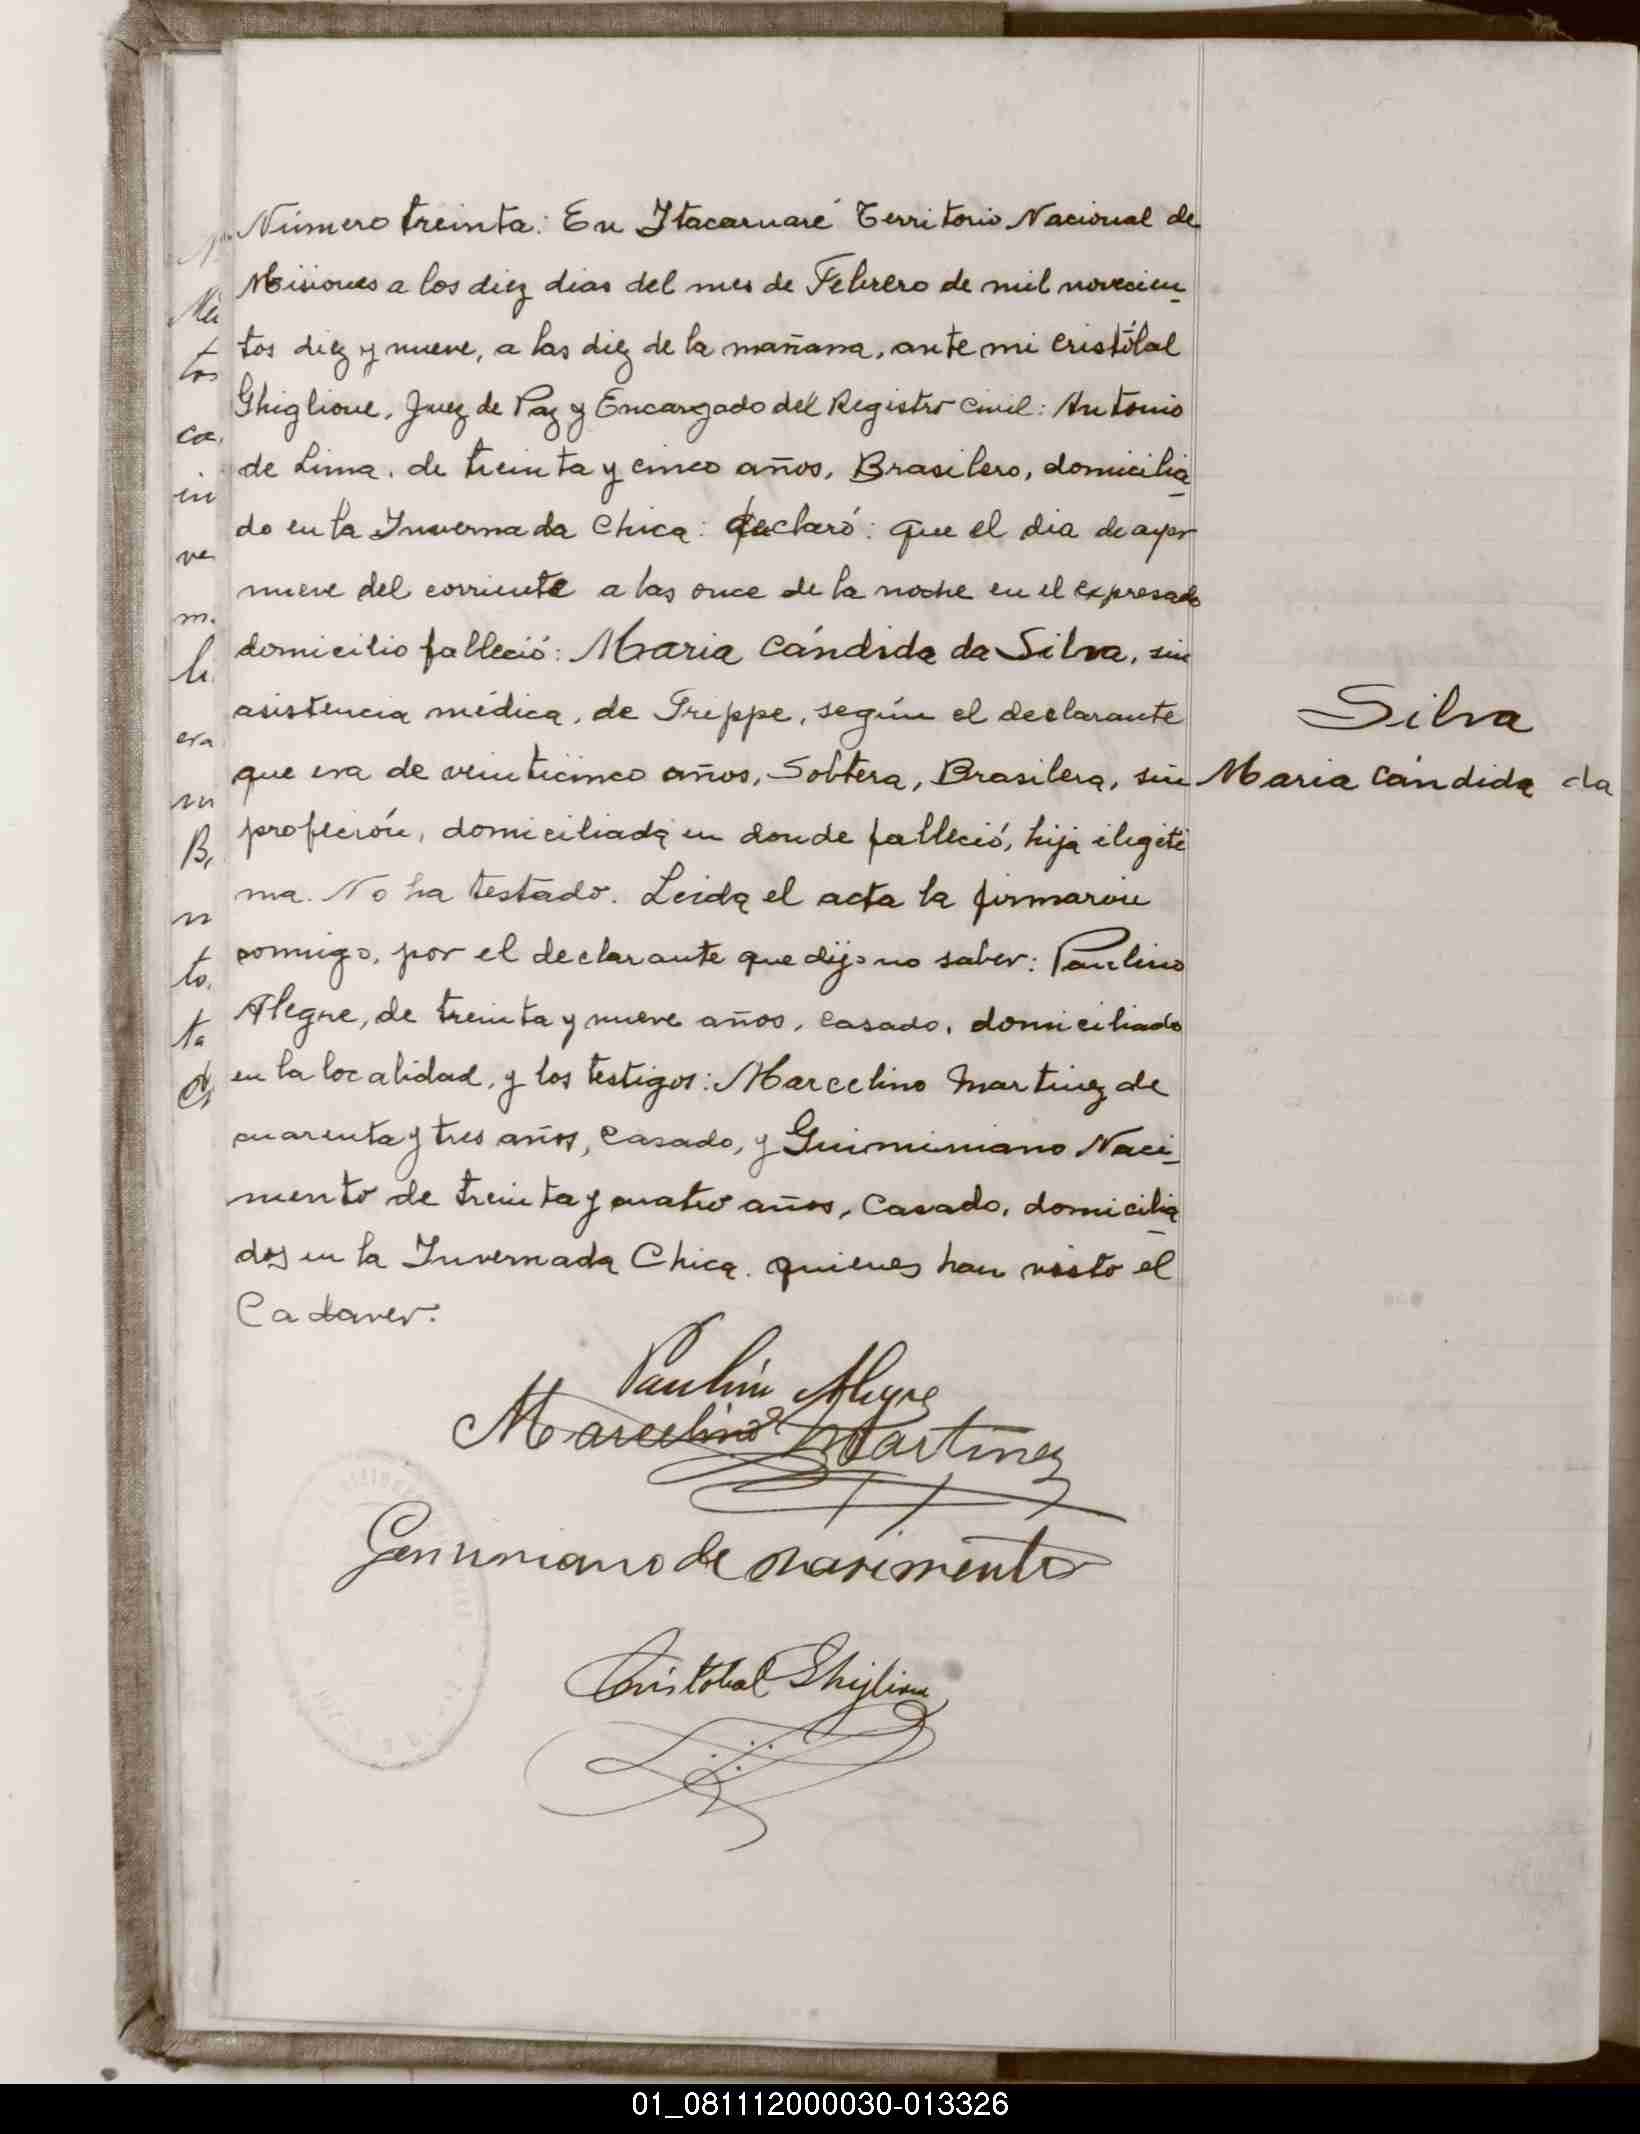 Número treinta: En Itacaruaré Territorio Nacional de
Misiones a los diez dias del mes de Febrero de mil novecien_
tos diez y nueve, a las diez de la mañana, ante mi Cristóbal
Ghiglione, Juez de Paz y Encargado del Registro Civil: Antonio
de Lima, de treinta y cinco años, Brasilero, domicilia_
do en la Invernada Chica: declaró: que el dia de ayer
nueve del corriente a las once de la noche en el expresado
domicilio falleció: Maria Cándida da Silva, sin
asistencia médica, de Grippe, según el declarante
que era de veinticinco años, Soltera, Brasilera, sin
profeción, domiciliada en donde falleció, hija ilegiti
ma. No ha testado. Leida el acta la firmaron
comigo, por el declarante que dijo no saber: Paulino
Alegre, de treinta y nueve años, casado, domiciliado
en la localidad, y los testigos: Marcelino Martinez de
cuarenta y tres años, Casado, y Guiminiano Naci_
mento de treinta y cuatro años, Casado, domicilia_
dos en la Invernada Chica. quienes han visto el
Cadaver.
Silva
Maria Cándida da
Paulino Alegre
Marcelino Martinez
Geminiano de nacimento
Cristobal Ghiglione
01_081112000030-013326